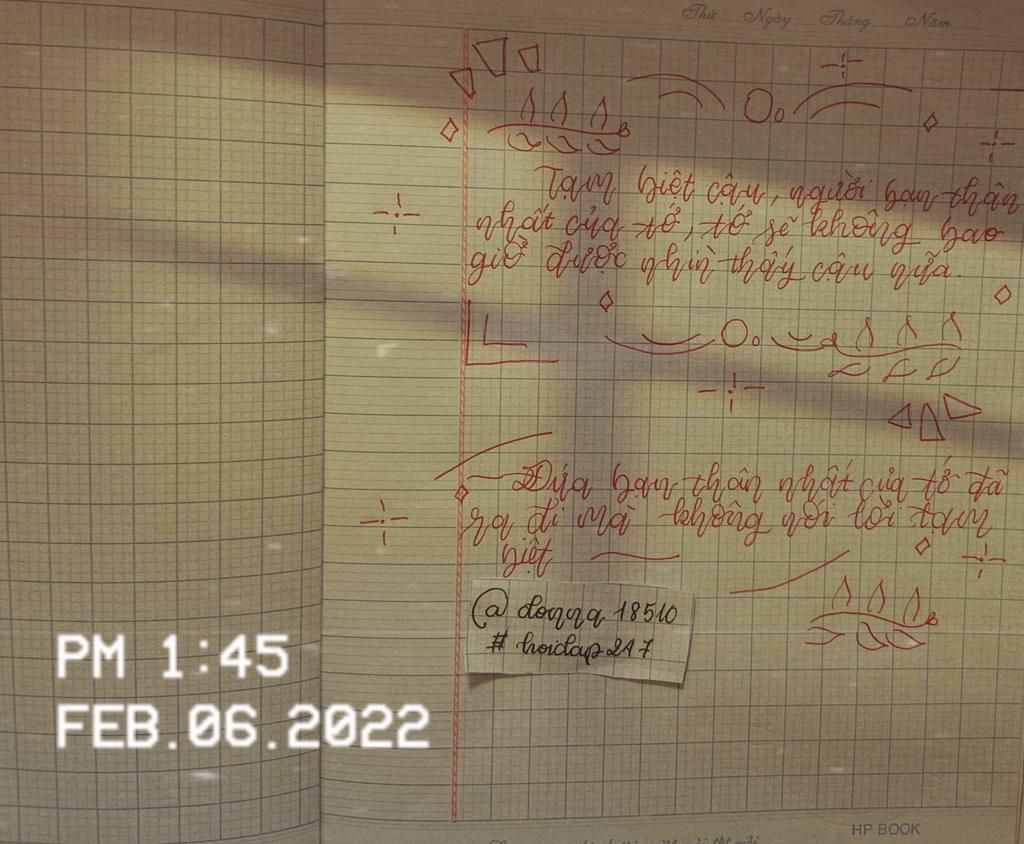 Thứ......Ngày.......Tháng.........Năm...........
Tạm biệt cậu, người bạn thân
nhất của tớ, tớ sẽ không bao
giờ được nhìn thấy cậu nữa.
Đứa bạn thân nhất của tớ đã
ra đi mà không nói lời tạm
biệt
@donna 18510
# hoidap247
PM 1:45
FEB.06.2022
HP BOOK